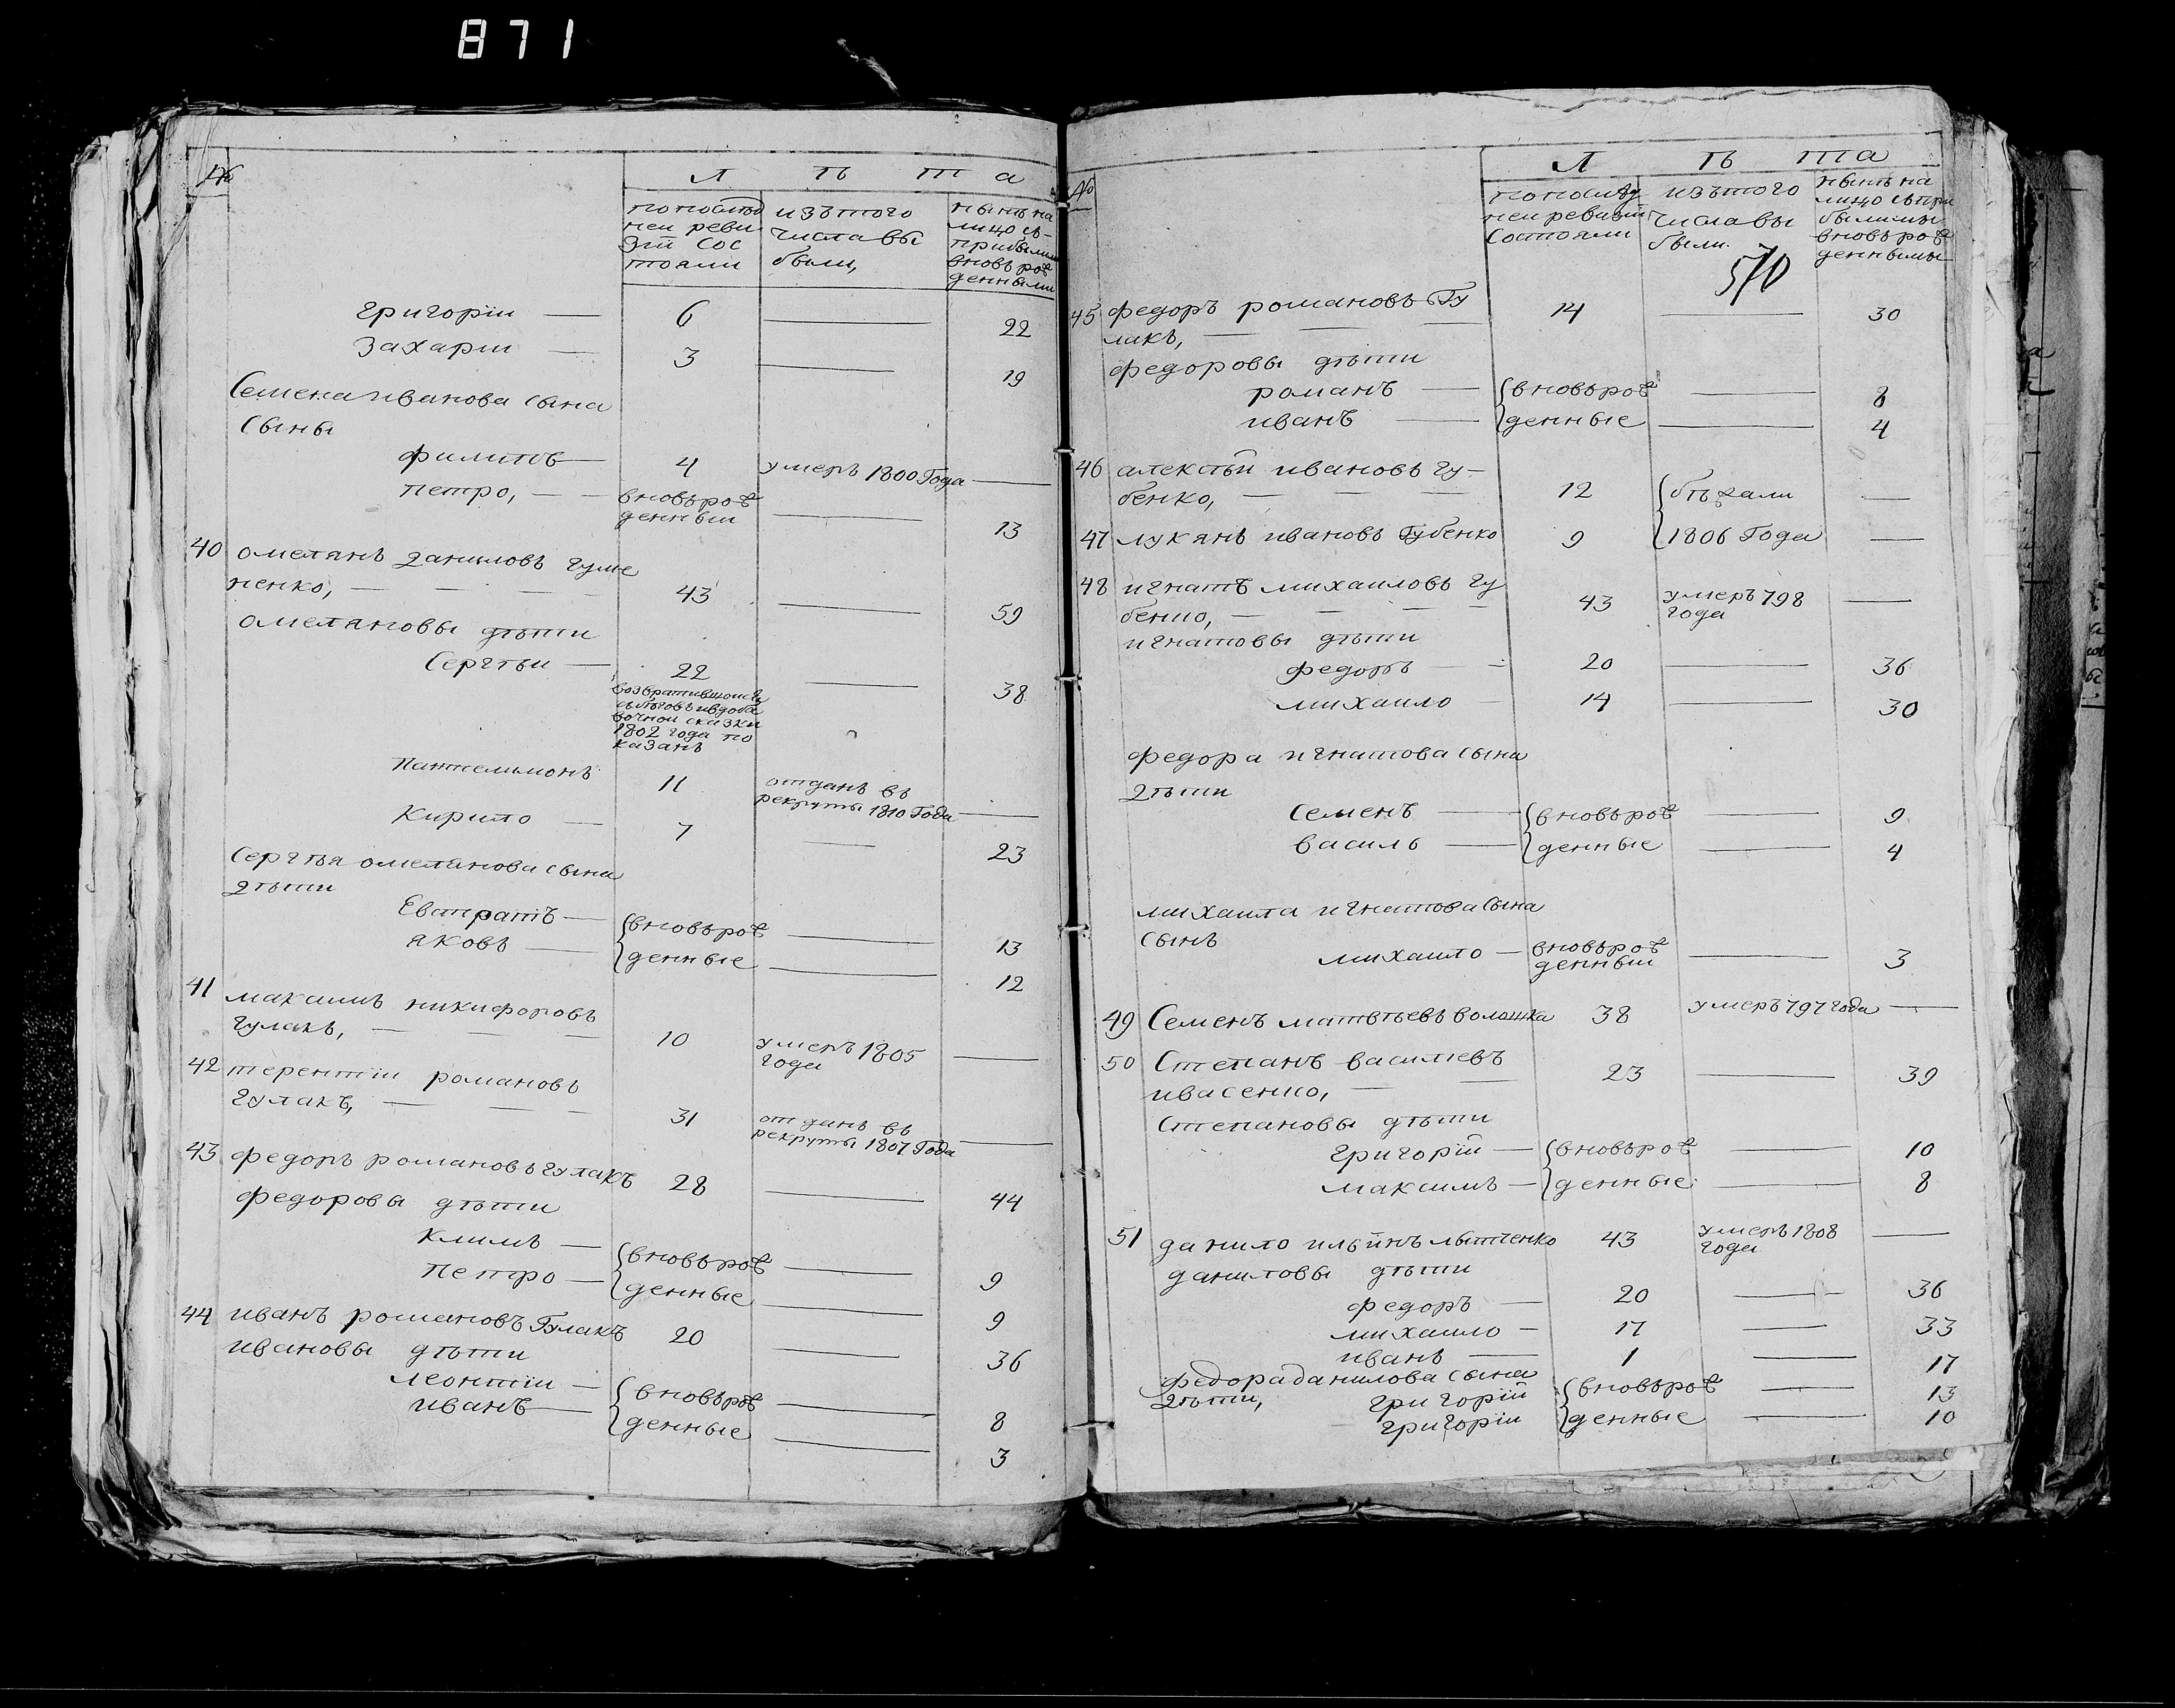 871
№ Л ѣ т а
по послѣд изъ того нынѣ на
ней реви числа вы лицо съ
зіи сос были, прибылыми
тояли вновь рож
денными
григоріи — 6 — 22
захаріи — 3 — 19
Семена иванова сына
сыны
филипъ — 4 умеръ 1800 Года —
петро, — вновь рож
денныи — 13
40 омелянъ даниловъ гуме
ненко, — 43 — 59
омеляновы дѣти
Сергѣи — 22 — 38
возвратившойся
съ бѣговъ и в доба
вочной сказки
1802 года по
казанъ
пантелимонъ 11 отданъ въ
рекруты 1810 Года —
Кирило — 7 — 23
Сергѣя омелянова сына
дѣти
Евстратъ — вновь рож — 13
яковъ — денные — 12
41 максимъ никифоровъ
гулакъ, — 10 умеръ 1805
года —
42 терентіи романовъ
гулакъ, — 31 отданъ въ
рекруты 1807 Года —
43 федоръ романовъ гулакъ 28 — 44
федоровы дѣти
климъ — вновь рож — 9
петро — денные — 9
44 иванъ романовъ Гулакъ 20 — 36
ивановы дѣти
леонтіи — вновь рож — 8
иванъ — денные — 3
№ Л ѣ т а
по послѣд изъ того нынѣ на
ней ревизіи числа вы лицо съ при
состояли были. былыми
вновь рож
денными
570
45 федоръ романовъ Гу 14 — 30
лакъ, —
федоровы дѣти
романъ — вновь рож — 8
иванъ — денные — 4
46 алексѣй ивановъ гу-
бенко, — 12 бѣжали —
47 лукянъ ивановъ Губенко 9 1806 Года —
48 игнатъ михаиловъ гу
бенко, — 43 умеръ 798
года —
игнатовы дѣти
федоръ — 20 — 36
михаило — 14 — 30
федора игнатова сына
дѣти
семенъ — вновь рож — 9
василь — денные — 4
михаила игнатова сына
сынъ
михаило — вновь рож
денныи — 3
49 Семенъ матвѣевъ волошка 38 умеръ 797 года —
50 Степанъ василіевъ
ивасенко, — 23 — 39
Степановы дѣти
григорій — вновь рож — 10
максимъ — денные — 8
51 данило ильинъ лытченко 43 умеръ 1808
года —
даниловы дѣти
федоръ — 20 — 36
михаило — 17 — 33
иванъ — 1 — 17
федора данилова сына
дѣти, григорій вновь рож — 13
григоріи денные — 10